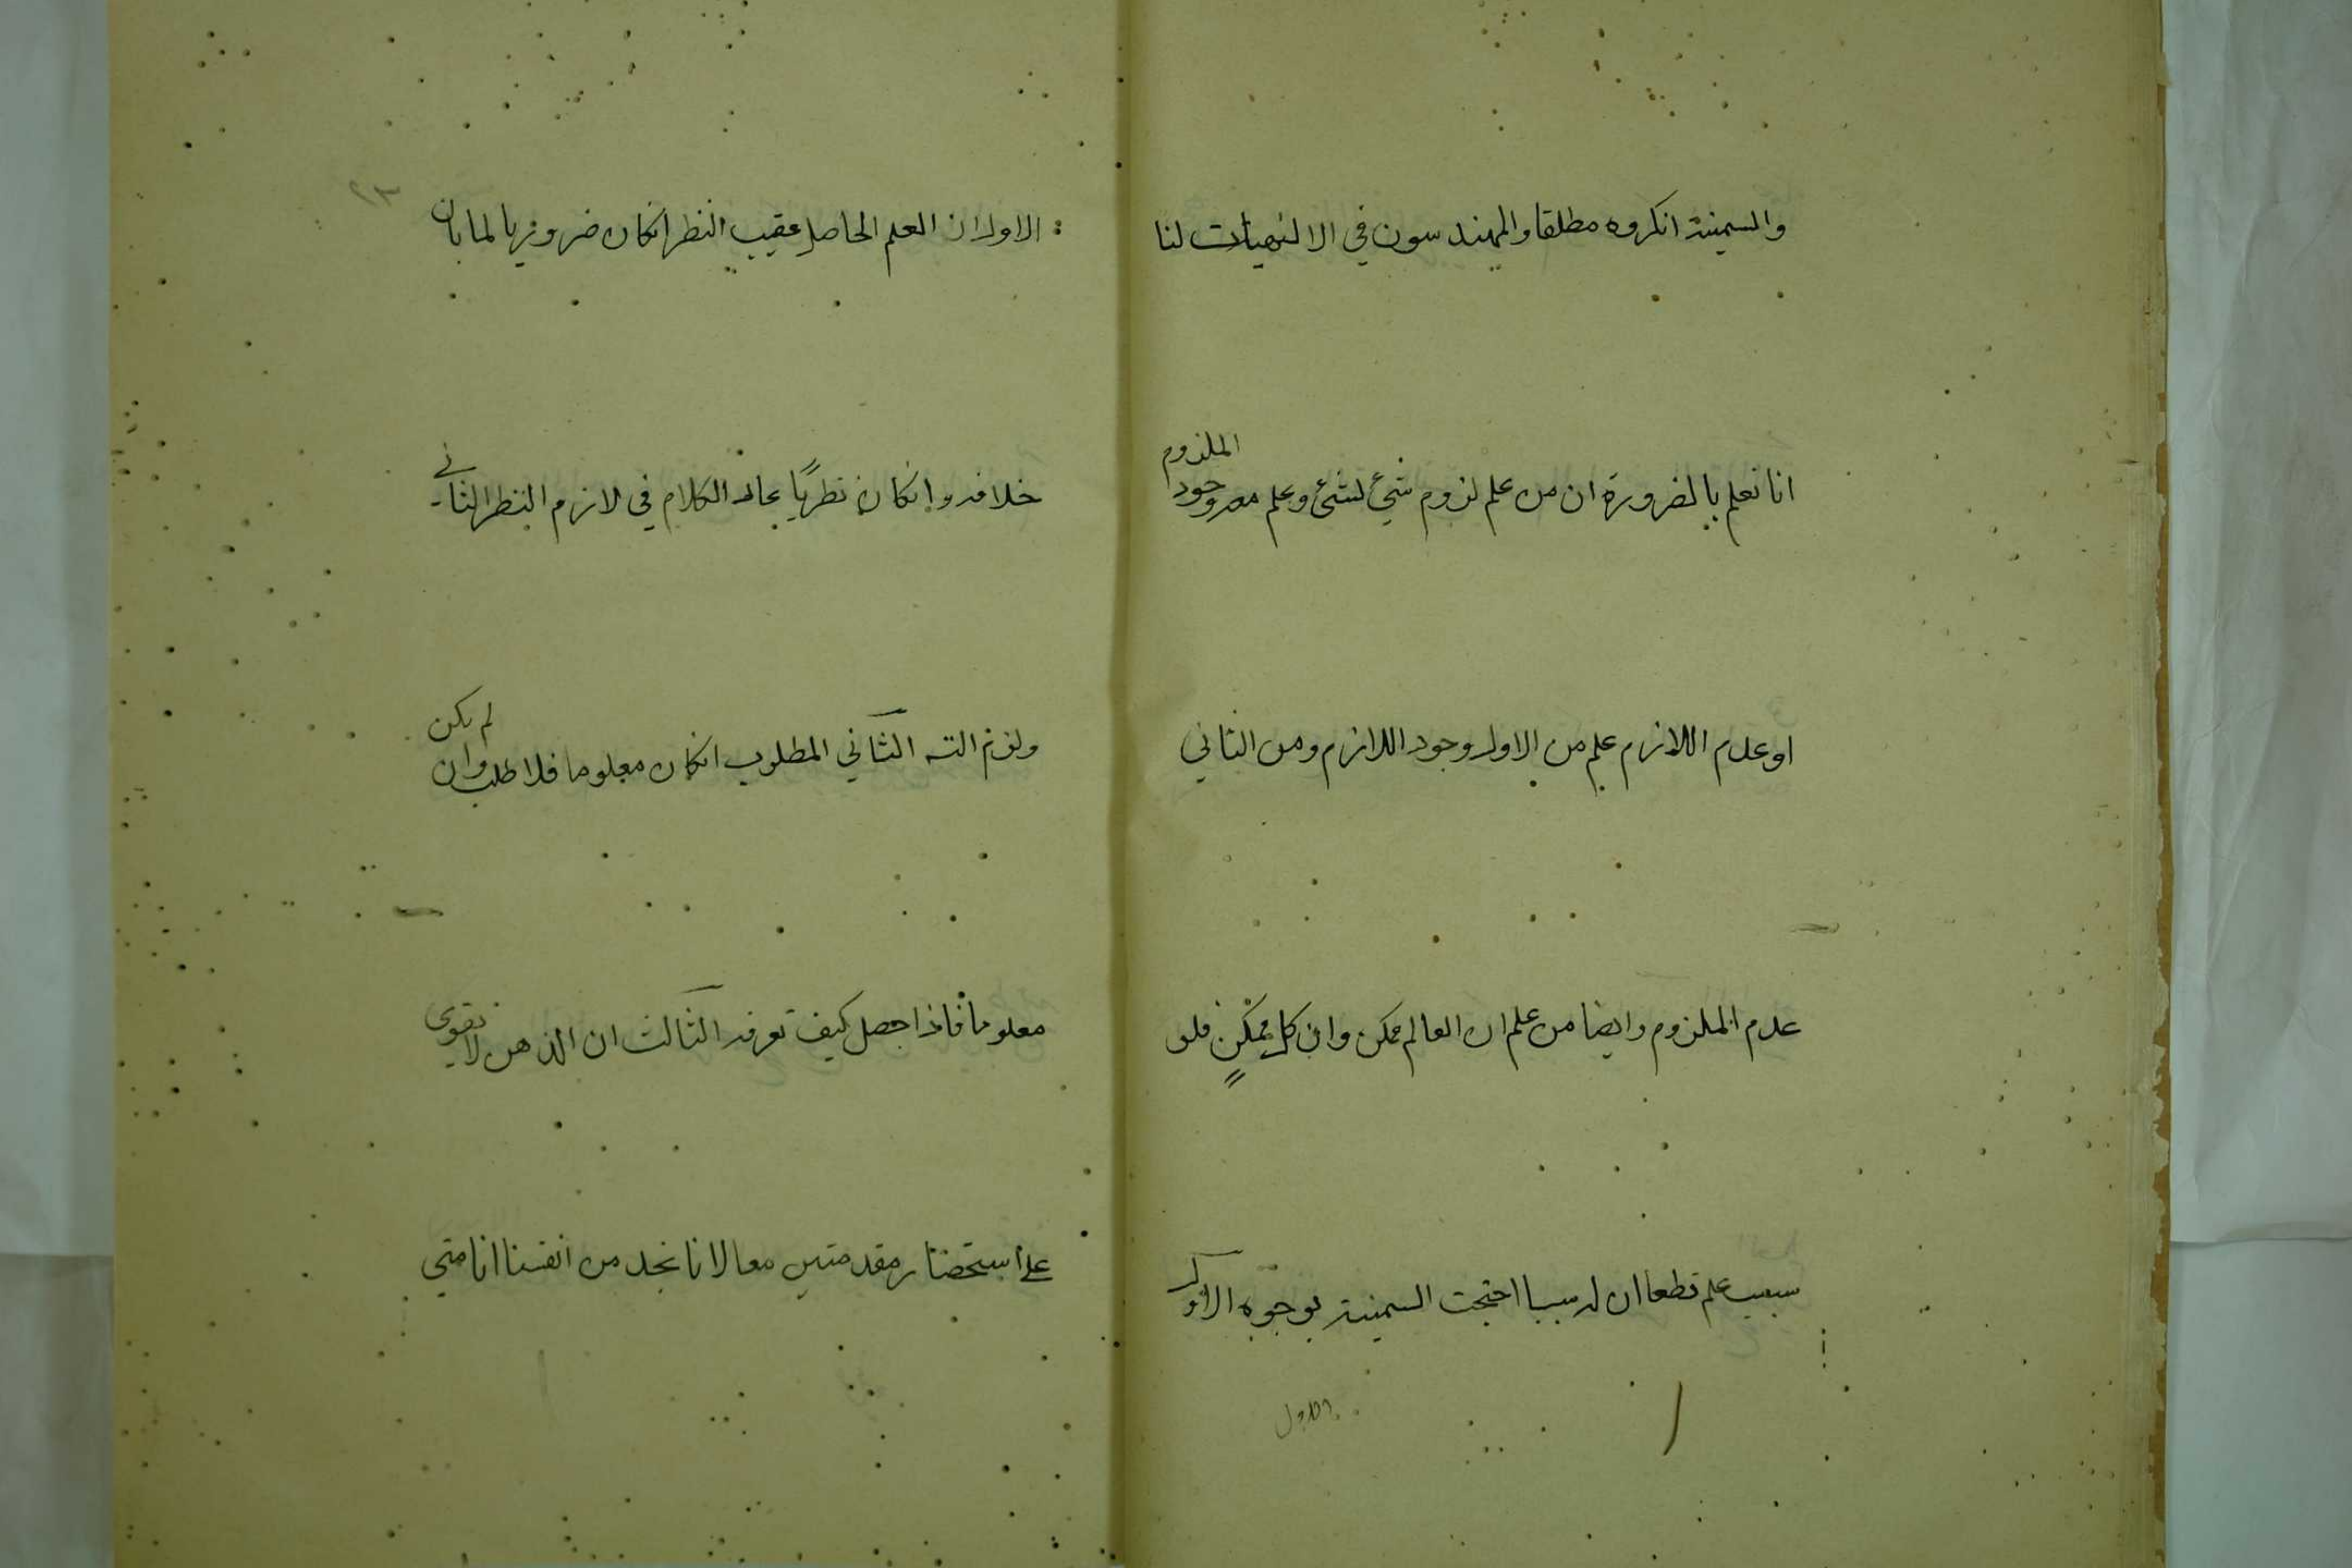 والسمنية انكروه مطلقا والمهندسون في الالهيات لنا
انا نعلم بالضرورة ان من علم لزوم شيء لشيء وعلم معه وجود الملزوم
او عدم اللازم علم من الاول وجود اللازم ومن الثاني
عدم الملزوم وايضا من علم ان العالم ممكن وان كل ممكن فله
سبب علم قطعا ان له سببا احتجت السمنية بوجوه الاول
الاول
٢٣
الاول ان العلم الحاصل عقيب النظر انكان ضروريا لما بان
خلافه وانكان نظريًا عاد الكلام في لازم النظر الثاني
ولزم التسـ الثاني المطلوب انكان معلوما فلا طلب وان لم يكن
معلوما فاذا حصل كيف تعرفه الثالث ان الذهن لا يقوى
على استحضار مقدمتين معا لانا نجد من انفسنا انا متى